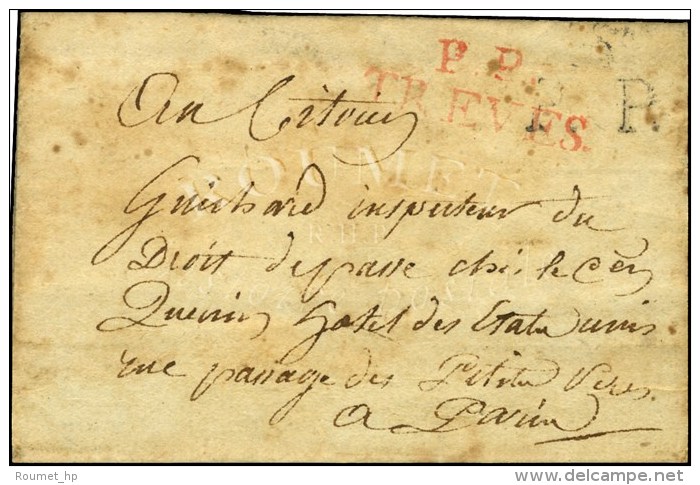 P.P.
TREVES.
P. P.
Au Citoien
ROUMET
Guichard inspecteur du
Droit de passe chéz le Cen
Hotel des Etats unis
rue passage des Petits Peres
a Paris
Roumet_hp
www.delcampe.net